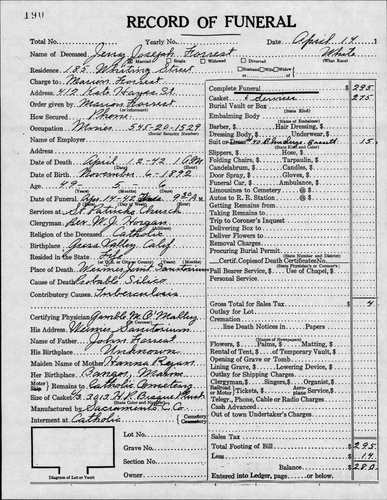 190
RECORD OF FUNERAL
Total No. Yearly No. April 14 19
Name of Deceased Jerry Joseph Forrest White
Married Single Widowed Divorced (What Race)
Residence: 185 Whiting Street
Charge to: Marion Forrest
Address: 412 Kate Hayes St.
Order given by Marion Forrest
How Secured Phone
Occupation Miner 545-20-1529
(Social Security Number)
Name of Employer
Address
Date of Death April 12-42 1 P.M.
Date of Birth November 6-1892
Age 49 5 6
(Years) (Months) (Days)
Date of Funeral Apr 14-42 9:30 A.M.
Services at St Patricks Church
Clergyman Rev. W.J. Horgan
Religion of the Deceased Catholic
Birthplace Grass Valley Calif.
Resided in the State Life
Place of Death Weimar Joint Sanitorium
Cause of Death Probable Silico
Contributory Causes Tuberculosis
Certifying Physician Gamble M. O'Malley
His Address Weimar Sanitorium
Name of Father John Forrest
His Birthplace Unknown
Maiden Name of Mother Hanna Regan
Her Birthplace Bangor, Maine
Remains to Catholic Cemetery
Size of Casket
(State Color and Number)
Manufactured by Sacramento C. Co.
Interment at Catholic Cemetery
Lot No.
Grave No.
Section No.
Owner
Diagram of Lot or Vault
Complete Funeral $ 295
Casket & Services 275
Burial Vault or Box
(State Kind)
Embalming Body
(Name of Embalmer)
Barber, $ Hair Dressing, $
Dressing Body, $ Underwear, $
Suit or Dress 15
(State Kind and Color)
Slippers, $ Hose, $
Folding Chairs, $ Tarpaulin, $
Candelabrum, $ Candles, $
Door Spray, $ Gloves, $
Funeral Car, $ Ambulance, $
Limousines to Cemetery @ $
Autos to R. R. Station @ $
Getting Remains from
Taking Remains to
Trip to Coroner's Inquest
Delivering Box to
Deliver Flowers to
Removal Charges
Procuring Burial Permit
(State Number and District)
Certif. Copies of Death Certificate No.
(State Physician's or Coroner's)
Pall Bearer Service, $ Use of Chapel, $
Personal Service
Gross Total for Sales Tax $ 4
Outlay for Lot
Cremation
line Death Notices in Papers
(Names of Newspapers)
Flowers, $ Palms, $ Matting, $
Rental of Tent, $ of Temporary Vault, $
Opening of Grave or Tomb
Lining Grave, $ Lowering Device, $
Outlay for Shipping Charges
Clergyman, $ Singers, $ Organist, $
Railroad Tickets, $ Aeroplane Service, $
Telegr., Phone, Cable or Radio Charges
Cash Advanced
Out of town Undertaker's Charges
Sales Tax
Total Footing of Bill $ 295
Less $
Balance $ 280
Entered into Ledger, page or below.